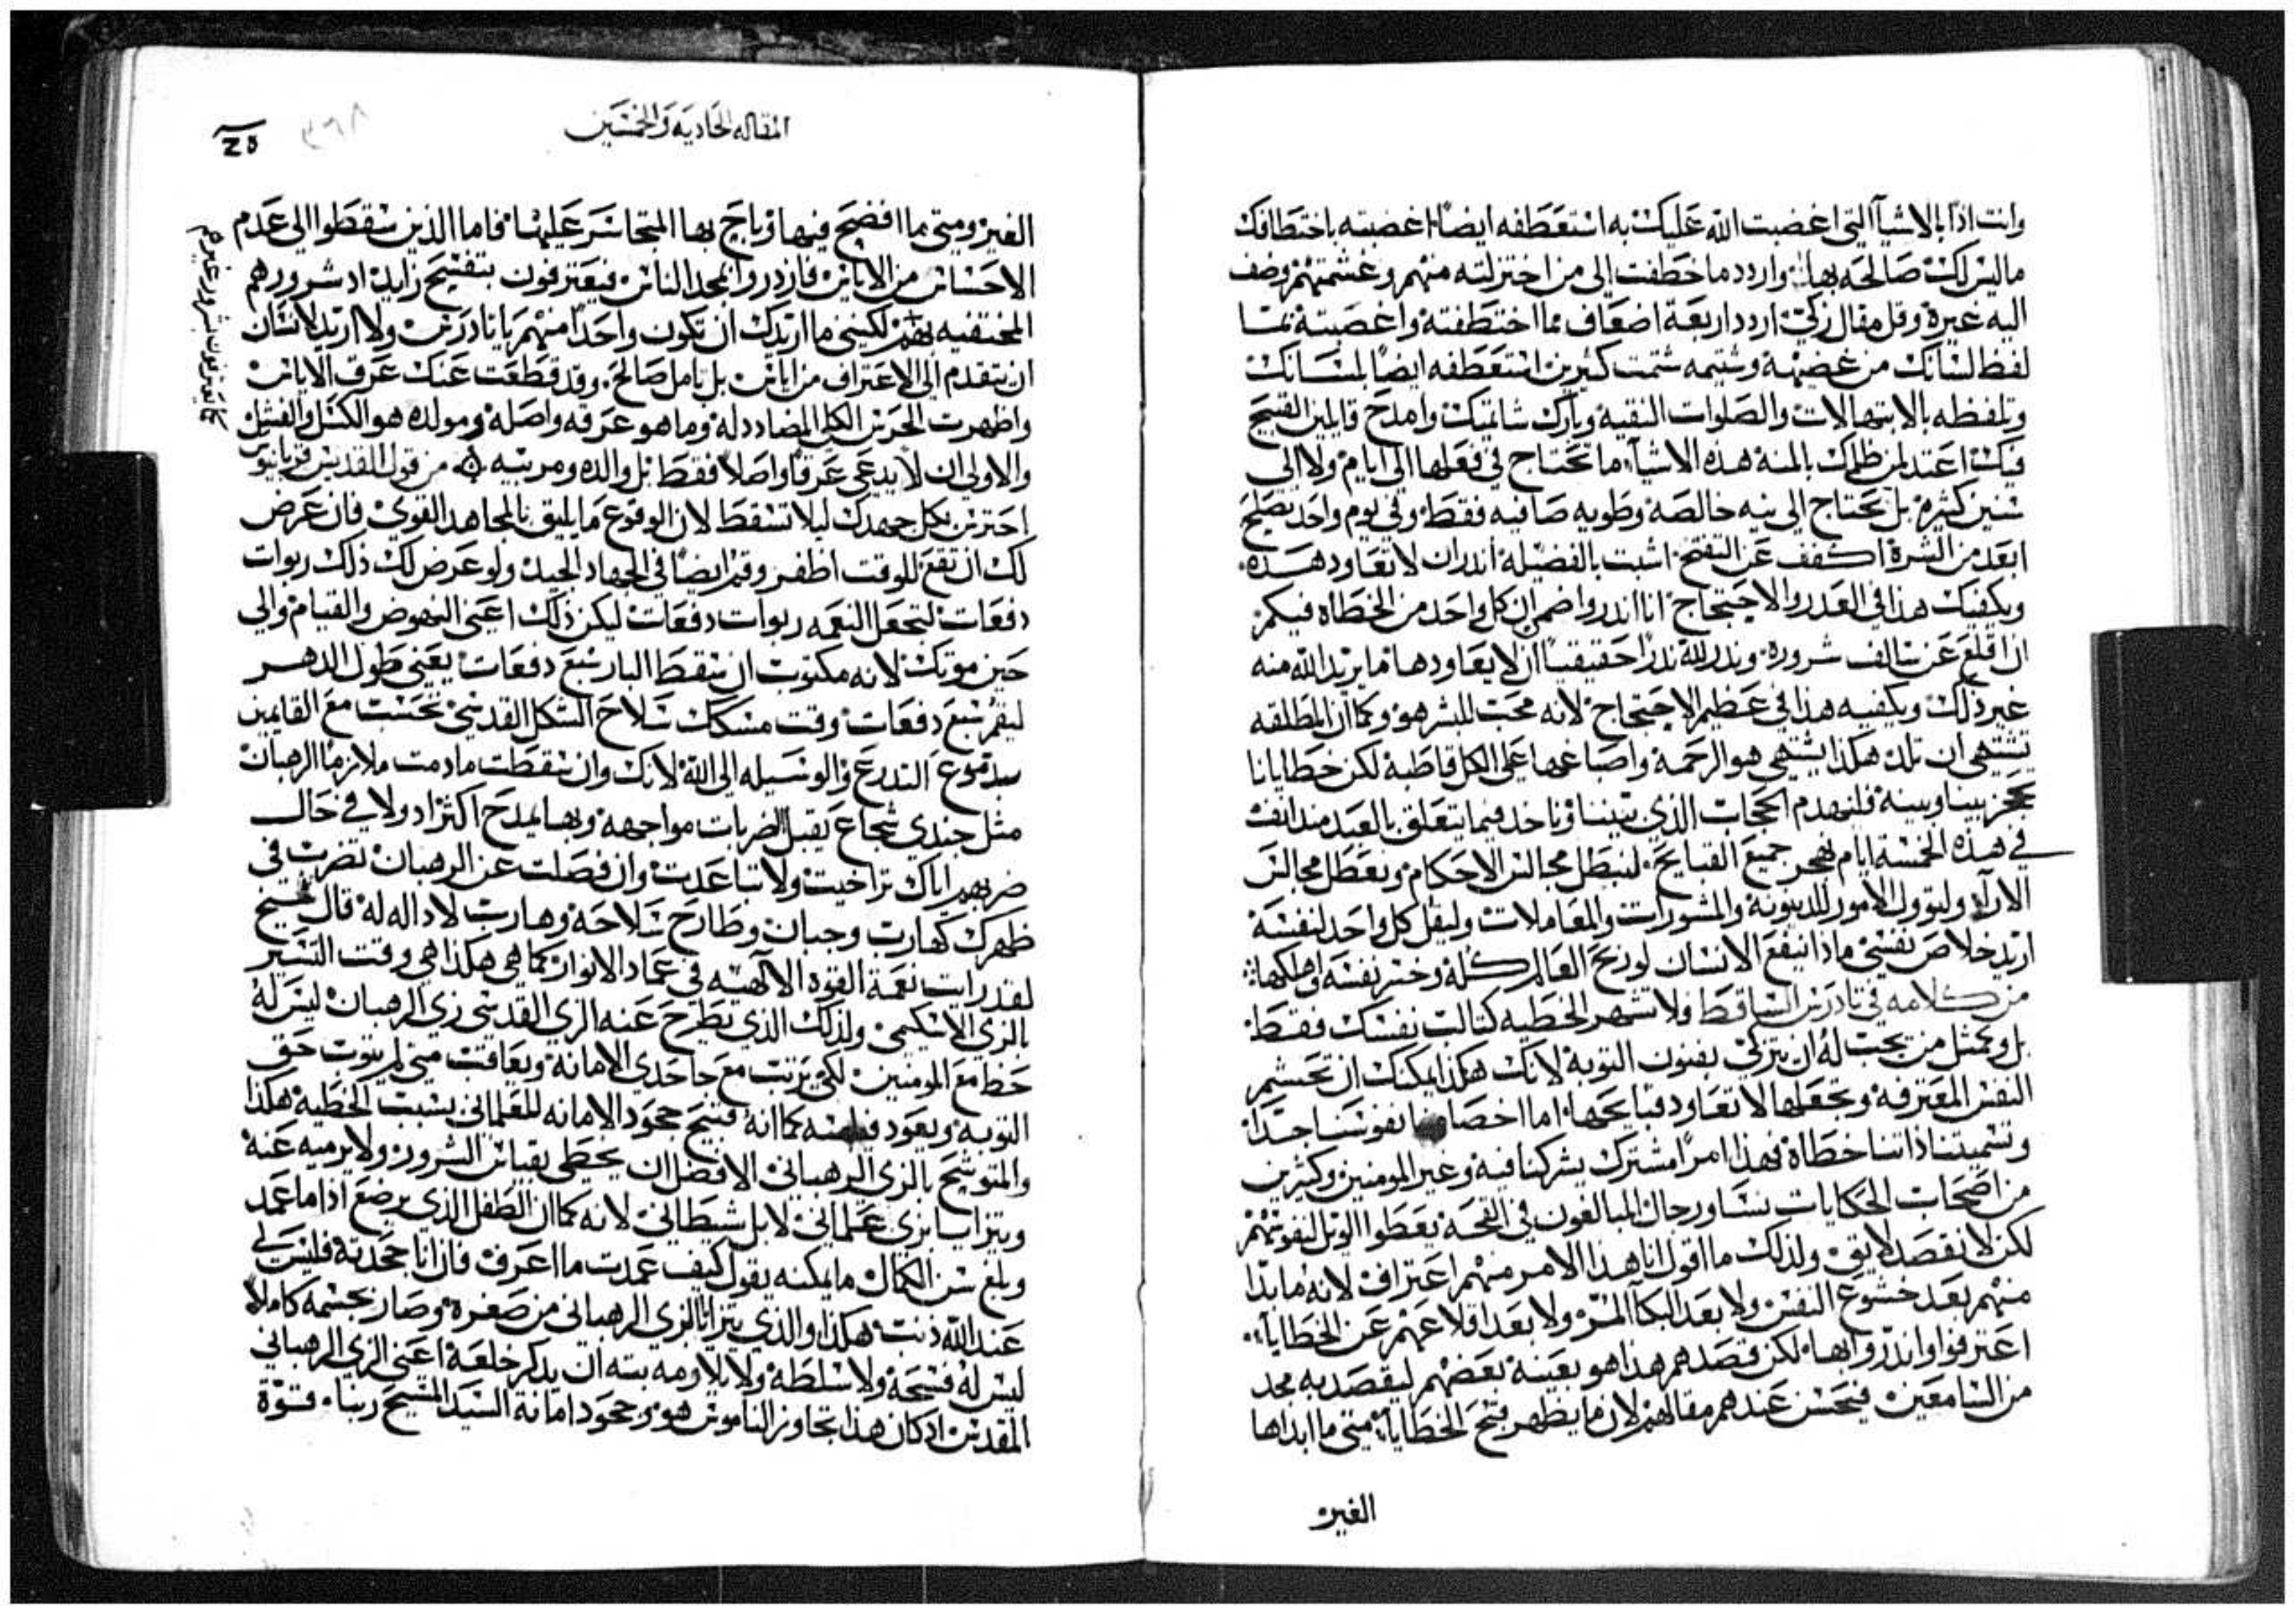 وانت اذًا بالاشيآ التي اغضبت الله عليك به استعطفه ايضًا اغضبته باختطافك
ما ليس لك صالحه بها واردد ما خطفت الى من اختزلته منهم وغشمتهم وضف
اليه غيره وقل مقال زكي اردد اربعة اضعاف مما اختطفته واغصبته
لفظ لسانك من غضبه وشتيمه شتمت كثيرين استعطفه ايضًا بلسانك
وتلفظه بالابتهالات والصلوات النقيه وبارك شاتميك وامدح قايلين القبيح
فيك اعتد لمن ظلمك بالمنه هذه الاشيآ ما تحتاج في فعلها الى ايام ولا الى
سنين كثيره بل تحتاج الى نيه خالصه وطويه صافيه فقط وفي يوم واحد تصلح
ابعد من الشره اكفف عن القبح اثبت بالفضيله اندر ان لا تعاود هذه
ويكفيك هذا في العذر والاحتجاج انا اندر واضمن ان كل واحد من الخطاه فيكم
ان اقلع عن سالف شروره وندر لله ندرًا حقيقيًا ان لا يعاودها ما يريد الله منه
غير ذلك ويكفيه هذا في عظيم الاحتجاج لانه محب للبشر هو وكما ان المطلقه
تشتهي ان تلد هكذا يشتهي هو الرحمه واصباغها على الكل قاطبة لكن خطايانا
تحجز بيننا وبينه فلنهدم الحجاب الذي بيننا وناخد فيما يتعلق بالعيد منذ الان
في هذه الخمسة ايام نهجر جميع القبايح لنبطل مجالس الاحكام وتعطل مجالس
الارآ ولتوول الامور للدينونه والمشورات والمعاملات وليقل كل واحد لنفسه
اريد خلاص نفسي ماذا ينفع الانسان لو ربح العالم كله وخسر نفسه واهلكها
من كلامه في تادرس الساقط ولا تشهر الخطيه كثالب نفسك فقط
بل وكمثل من يجب له ان يتزكى بفنون التوبة لانك هكذا يمكنك ان تحشم
النفس المعترفه وتجعلها لا تعاود قبايحها اما نفوسنا جدًا
وتسميتنا ذاتنا خطاة فهذا امرًا مشترك يشركنا فيه وغير المومنين وكثيرين
من اصحاب الحكايات نسا ورجال المبالغون في القحه يعطوا الويل لنفوسهم
لكن لا بقصد لايق ولذلك ما اقول انا هذا الامر منهم اعتراف لانه ما بدا
منهم بعد خشوع النفس ولا بعد البكآ المر ولا بعد اقلاعهم عن الخطايا
اعترفوا واندروا بها لكن قصدهم هذا هو بعينه بعضهم ليقصد به مجد
من السامعين فيحسن عندهم مقالهم لان ما يظهر قبح الخطايا متى ما ابداها
الغير
المقاله الحاديه والخمسين
الغير ومتى ما افضح فيها وباح بها المتجاسر عليها فاما الذين سقطوا الى عدم
الاحساس من الاياس فازدروا بمجد الناس فيعترفون بتفسيح زايد اذ شرورهم
المختفيه بهم لكنني ما اريدك ان تكون واحدًا منهم يا تادرس ولا اريد لانسان
ان يتقدم الى الاعتراف من اياس بل بامل صالح وقد قطعت عنك عرق الاياس
واظهرت الحرس الكل المضادد له وما هو عرقه واصله ومولده هو الكسل والفشل
والاولى ان لا يدعى عرقًا واصلًا فقط بل والده ومربيه من قول القديس
احترس بكل جهدك ليلا تسقط لان الوقوع ما يليق بالمجاهد القوي فان عرض
لك ان تقع للوقت اظفر وقم ايضًا في الجهاد الجيد ولو عرض لك ذلك ربوات
دفعات لتجعل النعمه ربوات دفعات ليكن ذلك اعني النهوض والقيام والى
حين موتك لانه مكتوب ان سقط البار سبع دفعات يعني طول الدهر
ليقم سبع دفعات وقت مسكك سلاح الشكل القدسي تحسب مع القايمين
التدرع والوسيله الى الله لانك وان سقطت ما دمت ملازمًا الرهبان
مثل جندي شجاع يقبل الضربات مواجهه وبها يمدح اكثر اذ ولا في حال
ضربهم اياك تراخيت ولا تباعدت وان فصلت عن الرهبان تضرب في
ظهرك كهارب وجبان وطارح سلاحه وهارب لا داله له قال
لقد رايت نعمة القوه الالهيه في عماد الانوار كما هي هكذا هي وقت التستر
بالزي الاسكيمي ولذلك الذي يطرح عنه الزي القدسي زي الرهبان ليس له
حظ مع المومنين لكن يرتب مع جاحدي الامانه ويعاقب متى لم يتوب حق
التوبه ويعود كما انه قبيح جحود الامانه للعلماني بسبب الخطيه هكذا
والمتوشح بالزي الرهباني الافضل ان يخطي بقياس الشرور ولا يرميه عنه
ويتزايا بزي علماني لا بل شيطاني لانه كما ان الطفل الذي يرضع اذا ما عمد
وبلغ سن الكمال ما يمكنه يقول كيف عمدت ما اعرف فان انا جحدته فليس لي
عند الله ذنب هكذا والذي يتزايا بالزي الرهباني من صغره وصار بجسمه كاملًا
ليس له فسحه ولا سلطه ولا يلاومه بته ان يذكر خلعه اعني الزي الرهباني
المقدس اذ كان هذا تجاوز الناموس هو وجحود امانة السيد المسيح ربنا قوة